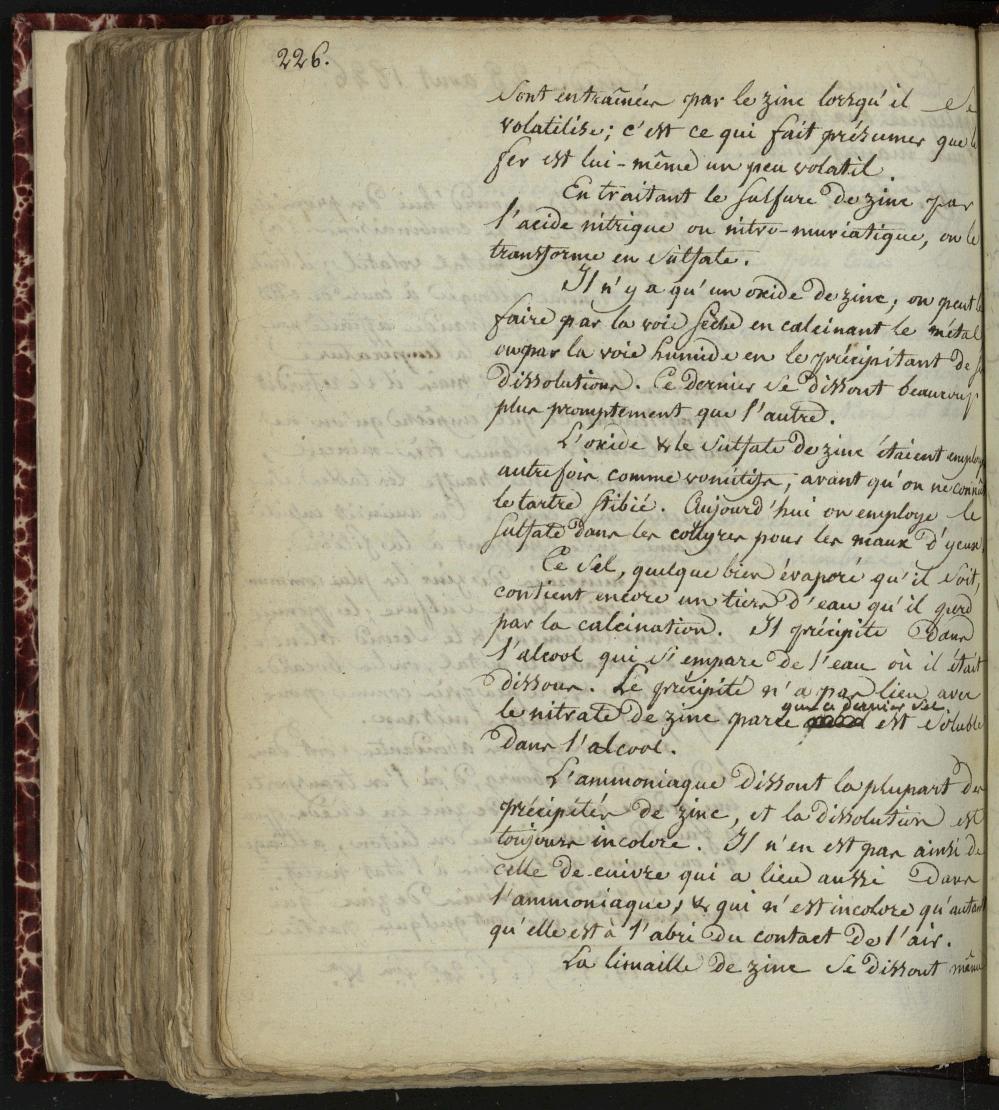 226.
sont entraînées par le zinc lorsqu'il se
volatilise; c'est ce qui fait présumer que le
fer est lui-même un peu volatil.
En traitant le sulfure de zinc par
l'acide nitrique ou nitro-muriatique, on le
transforme en sulfate.
Il n'y a qu'un oxide de zinc; on peut le
faire par la voie sèche en calcinant le métal
ou par la voie humide en le précipitant de
dissolutions. Ce dernier se dissout beaucoup
plus promptement que l'autre.
L'oxide & le sulfate de zinc étaient employ
autrefois comme vomitifs, avant qu'on ne connût
le tartre stibié. Aujourd'hui on employe le
sulfate dans les collyres pour les maux d'yeux.
Ce sel, quelque bien évaporé qu'il soit,
contient encore un tiers d'eau qu'il perd
par la calcination. Il précipite dans
l'alcool qui s'empare de l'eau où il était
dissous. Le précipité n'a pas lieu avec
que ce dernier sel
le nitrate de zinc parce est soluble
dans l'alcool.
L'ammoniaque dissout la plupart des
précipités de zinc, et la dissolution est
toujours incolore. Il n'en est pas ainsi de
celle de cuivre qui a lieu aussi dans
l'ammoniaque, & qui n'est incolore qu'autant
qu'elle est à l'abri du contact de l'air.
La limaille de zinc se dissout même